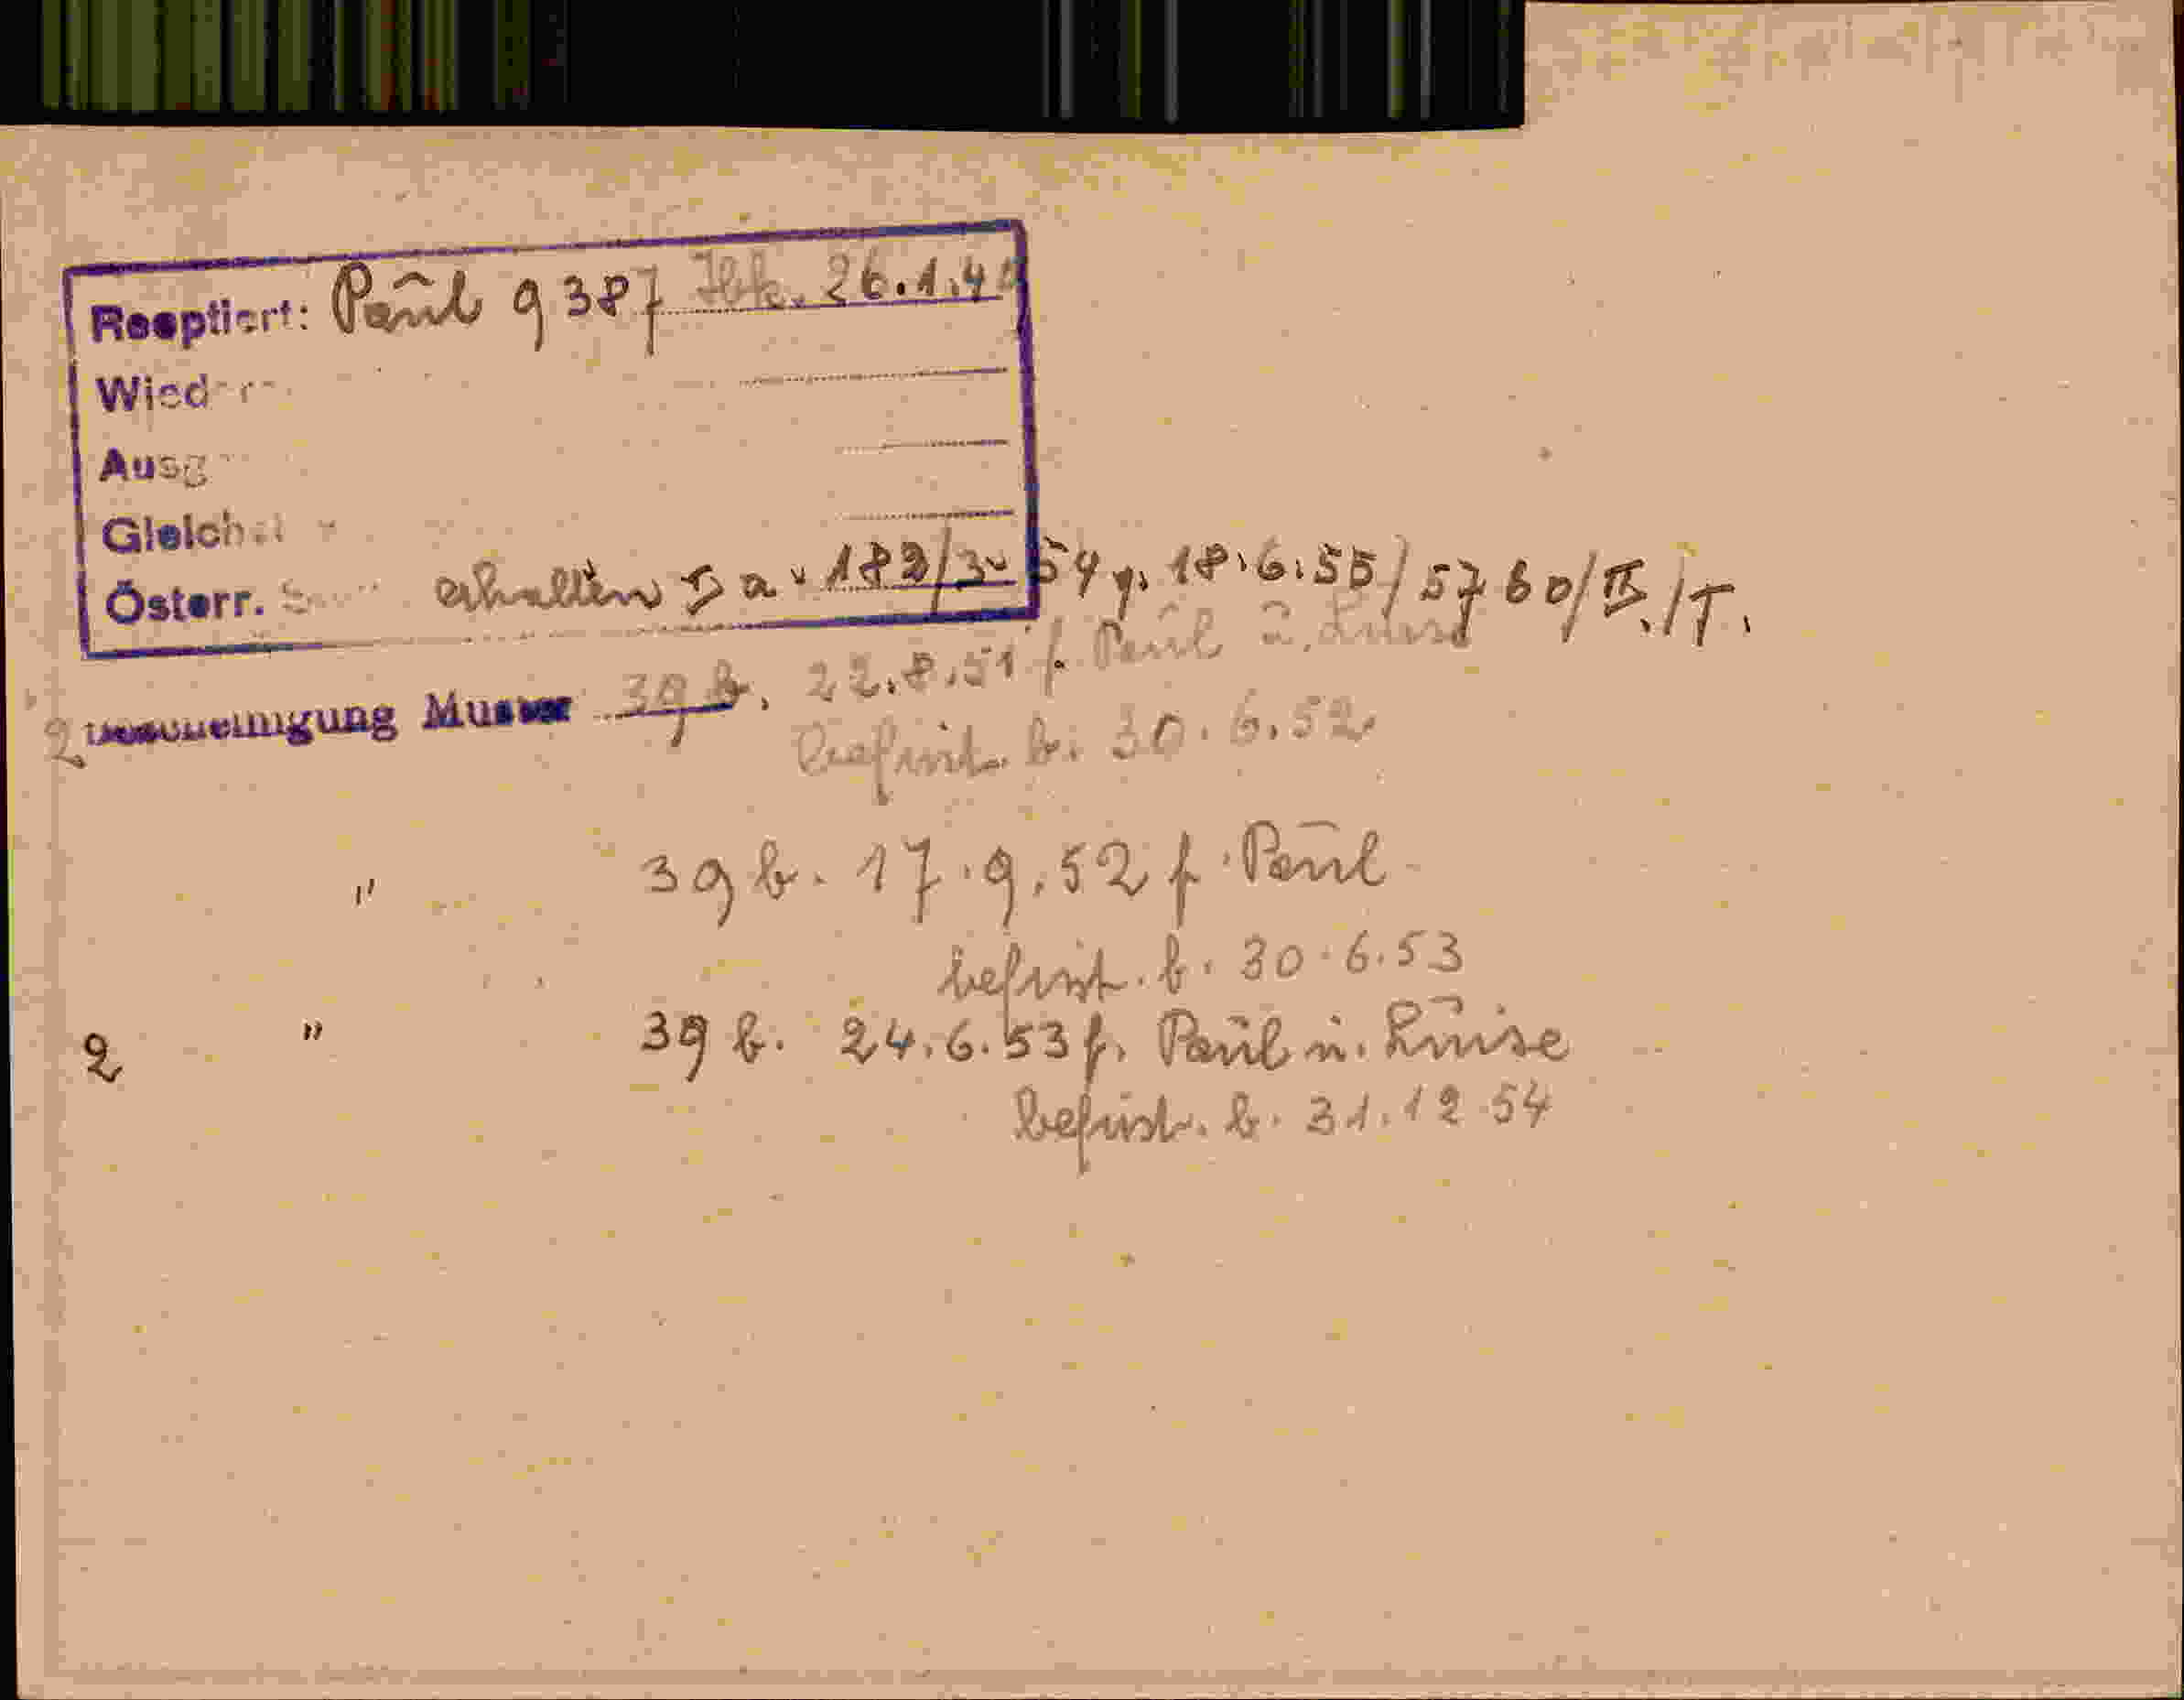 Reoptiert: Paul 9387 Ibk. 26.1.4
Wieder
Ausg
Gleich
Österr. erhalten 182/3 54 v. 18.6.55/5760/II./T.
2 Bescheinigung Muster 39 b. 22.8.51 f. Paul u. Luise
befrist. b. 30.6.52
" 39 b. 17.9.52 f. Paul
befrist. b. 30.6.53
2 " 39 b. 24.6.53 f. Paul u. Luise
befrist. b. 31.12.54